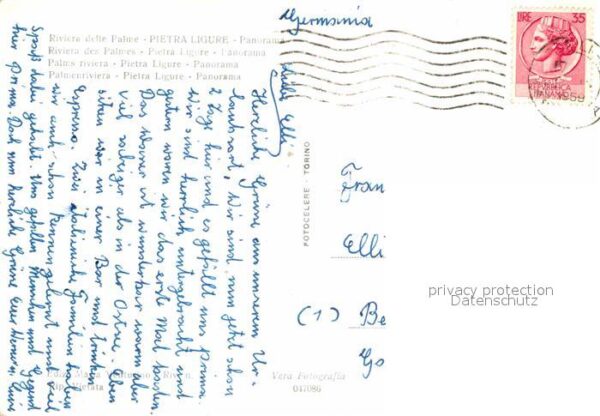 Germania
Riviera delle Palme - PIETRA LIGURE - Panorama
Riviera des Palmes - Pietra Ligure - Panorama
Palms riviera - Pietra Ligure - Panorama
Palmenriviera - Pietra Ligure - Panorama
LIRE 35
REPVBBLICA
ITALIANA
1969
Liebe Elli!
Herzliche Grüße aus unserem Ur-
laubsort. Wir sind nun jetzt schon
2 Tage hier und es gefällt uns prima.
Wir sind herrlich untergebracht und
gestern waren wir das erste Mal baden.
Das Wasser ist wunderbar warm aber
viel salziger als in der Ostsee. Eben
sitzen wir in einer Bar und trinken
Espresso. Zwei italienische Familien haben
wir auch schon kennengelernt und viel
Spaß dabei gehabt. Uns gefallen Menschen und Gegend
hier prima. Noch mal herzliche Grüße Eure
FOTOCELERE - TORINO
Frau
Elli
(1) Be
Go
privacy protection
Datenschutz
Vera Fotografia
047086
Vietata